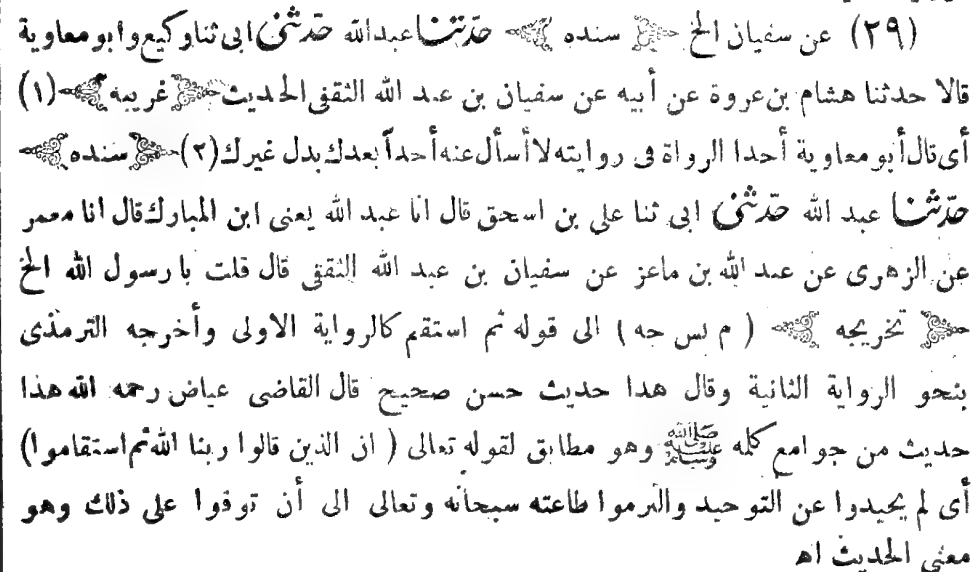 (٢٩) عن سفيان الخ ﴿ سنده ﴾ حدثنا عبد الله حدثنى ابى ثنا وكيع وابو معاوية
قالا حدثنا هشام بن عروة عن أبيه عن سفيان بن عبد الله الثقفى الحديث ﴿ غريبه ﴾ (١)
أى قال أبو معاوية أحدا الرواة فى روايته لا أسأل عنه أحداً بعدك بدل غيرك (٢) ﴿ سنده ﴾
حدثنا عبد الله حدثنى ابى ثنا على بن اسحق قال انا عبد الله يعنى ابن المبارك قال انا معمر
عن الزهرى عن عبد الله بن ماعز عن سفيان بن عبد الله الثقفى قال قلت يا رسول الله الخ
﴿ تخريجه ﴾ ( م نس جه ) الى قوله ثم استقم كالرواية الاولى وأخرجه الترمذى
بنحو الرواية الثانية وقال هذا حديث حسن صحيح قال القاضى عياض رحمه الله هذا
حديث من جوامع كلمه ﷺ وهو مطابق لقوله تعالى ( ان الذين قالوا ربنا الله ثم استقاموا )
أى لم يحيدوا عن التوحيد والتزموا طاعته سبحانه وتعالى الى أن توفوا على ذلك وهو
معنى الحديث اه